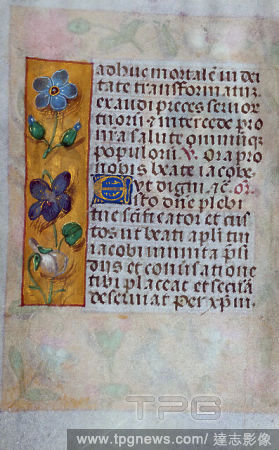 adhuc mortalē in dei
tate transformatur
exaudi preces seruor
tuorū & intercede pro
nr̄a salute omniūq;
populorū V. Ora pro
nobis beate iacobe
vt digni &c. or.
Esto dn̄e plebi
tue sc̄ificator et cus
tos ut beati apl̄i tui
iacobi munita p̄si
diis et conu̓satione
tibi placeat et secura
deseruiat Per xp̄m.
TPG
www.tpgnews.com/ 達志影像